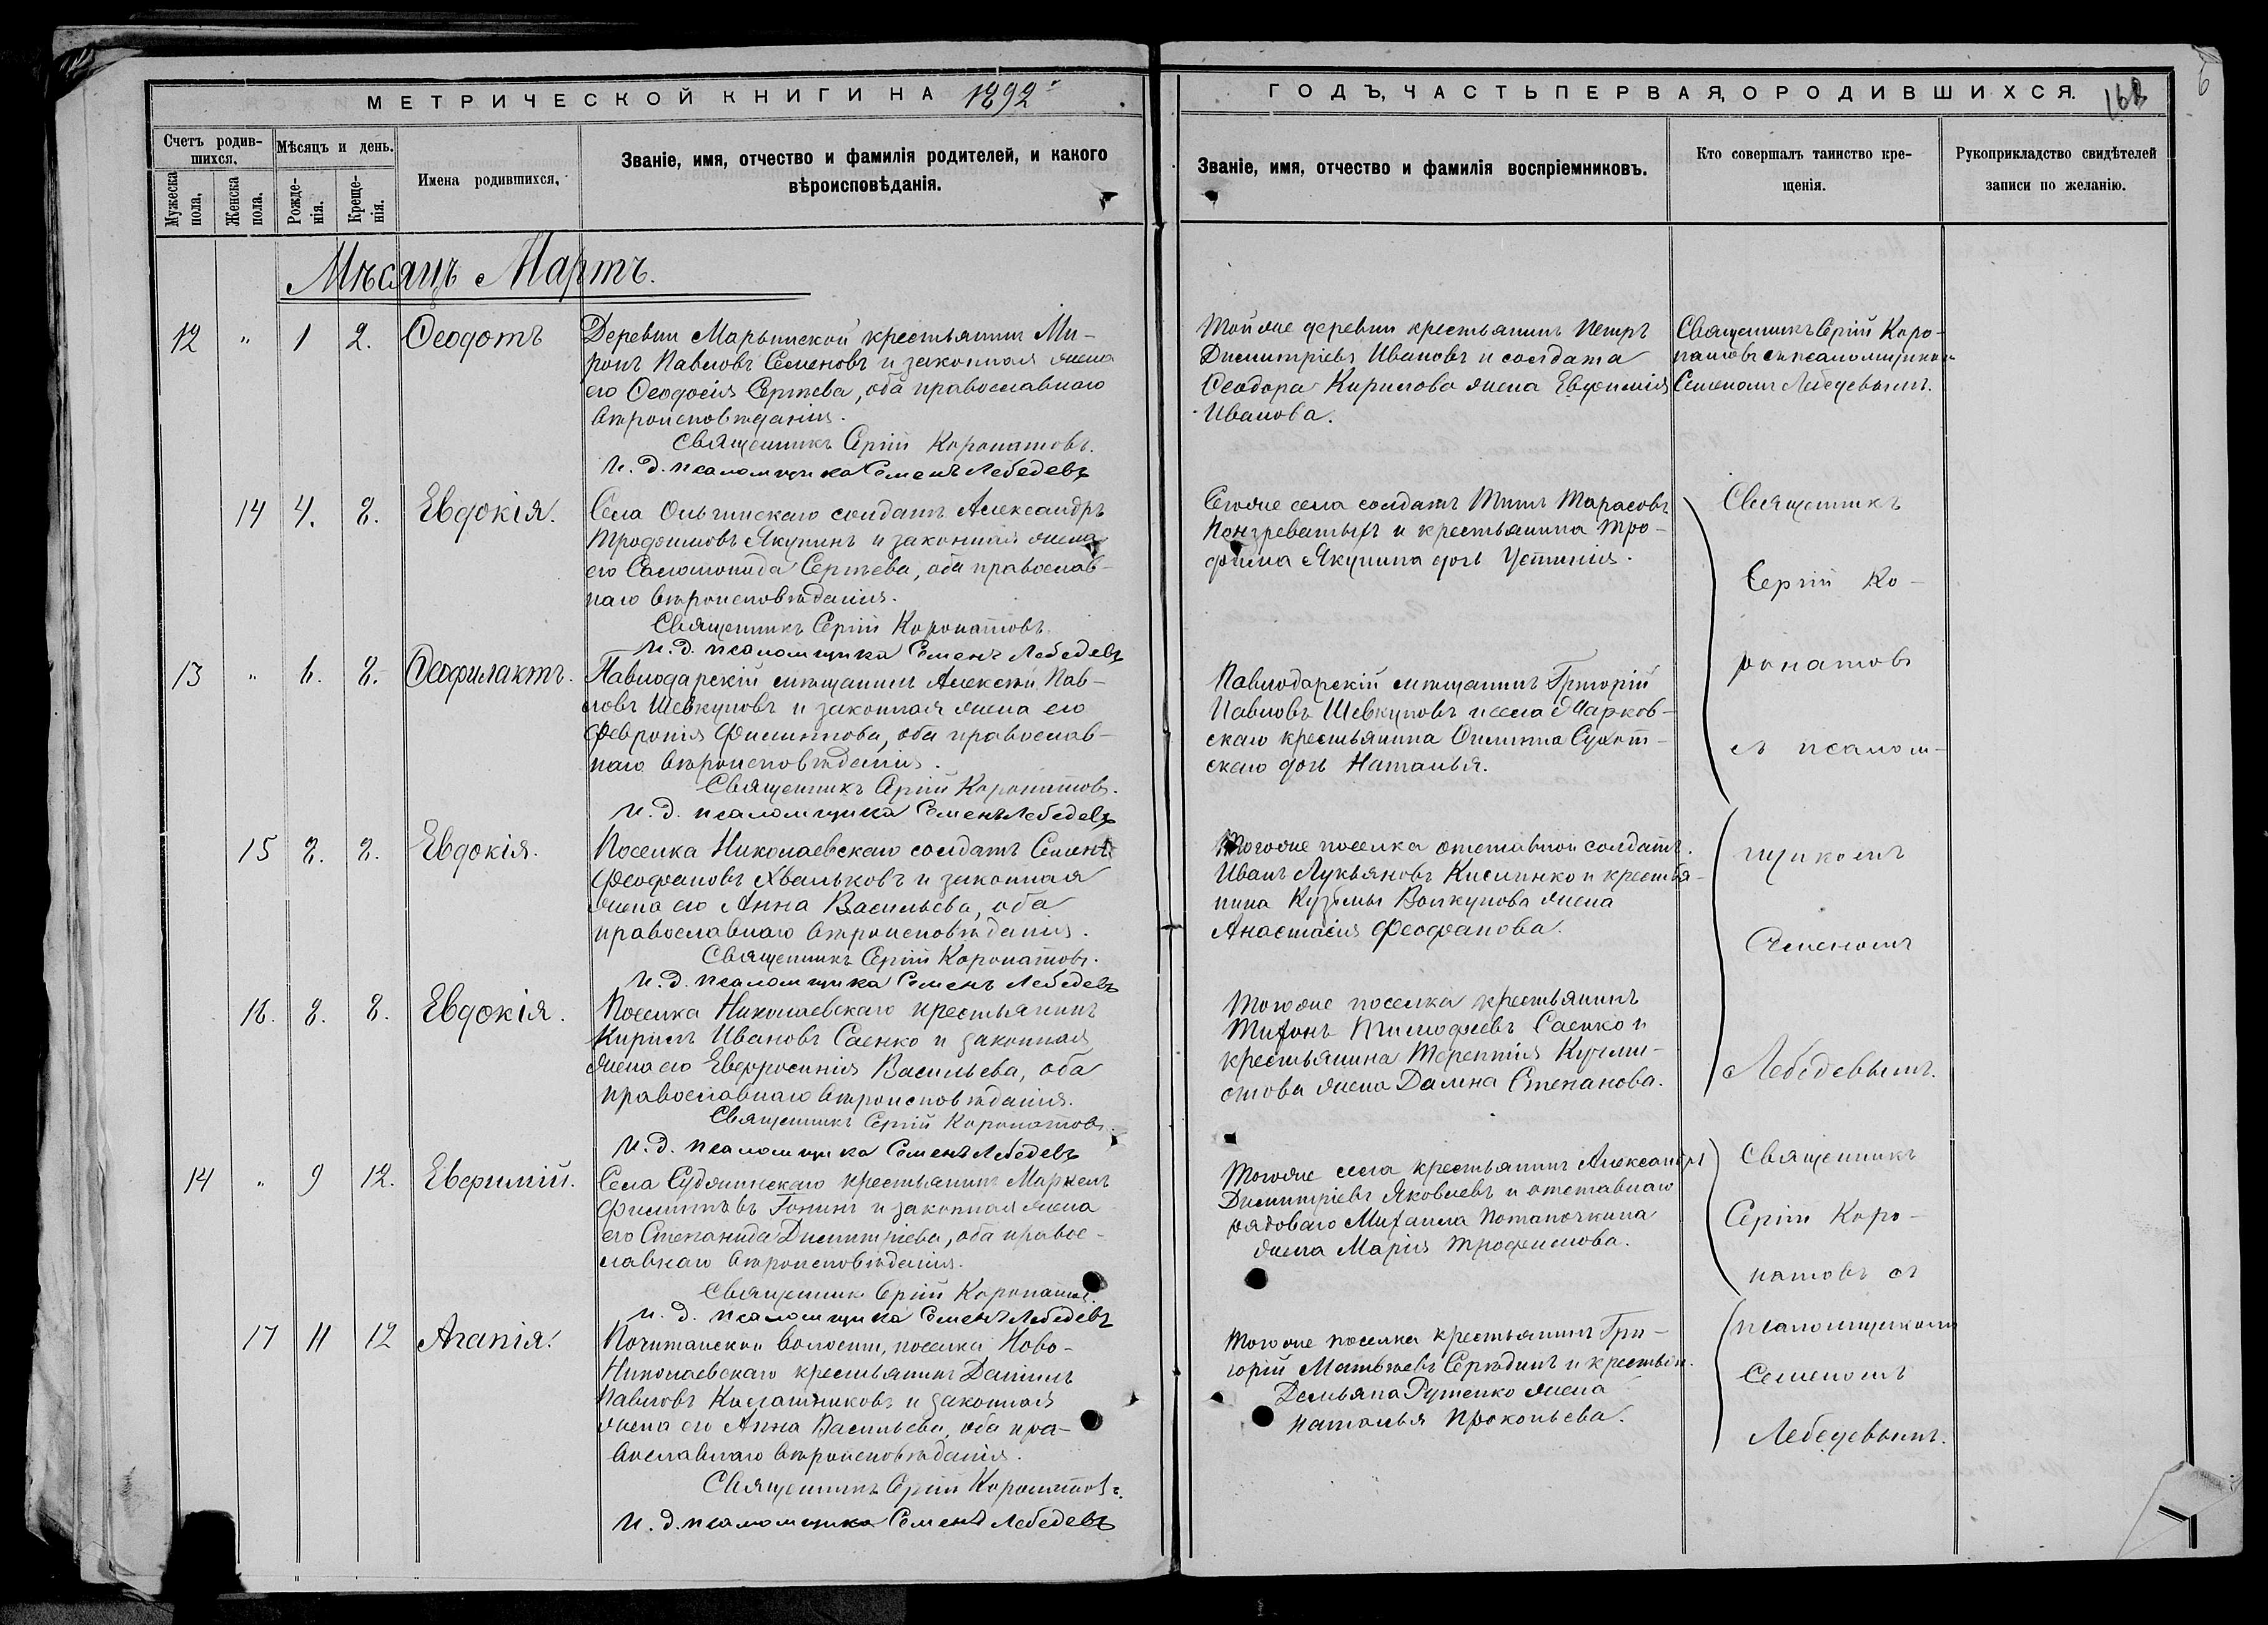 МЕТРИЧЕСКОЙ КНИГИ НА 1892й
Счетъ родив-
шихся.
Мѣсяцъ и день.
Мужеска
пола.
Женска
пола.
Рожде-
нія.
Креще-
нія.
Имена родившихся.
Званіе, имя, отчество и фамилія родителей, и какого
вѣроисповѣданія.
Мѣсяцъ Мартъ.
12 " 1 2. Ѳеодотъ
Деревни Марьинской крестьянинъ Ми-
ронъ Павловъ Семеновъ и законная жена
его Ѳеодосія Сергѣева, оба православнаго
вѣроисповѣданія.
Священникъ Сергій Коронатовъ.
И. д. псаломщика Семенъ Лебедевъ
14 4. 8. Евдокія.
Села Ольгинскаго солдатъ Александръ
Трофимовъ Якунинъ и законная жена
его Саломонида Сергѣева, оба православ-
наго вѣроисповѣданія.
Священникъ Сергій Коронатовъ.
И. д. псаломщика Семенъ Лебедевъ
13 " 6. 8. Ѳеофилактъ.
Павлодарскій мѣщанинъ Алексѣй Пав-
ловъ Шевкуновъ и законная жена его
Февронія Филиппова, оба православ-
наго вѣроисповѣданія.
Священникъ Сергій Коронатовъ.
И. д. псаломщика Семенъ Лебедевъ
15 8. 8. Евдокія.
Поселка Николаевскаго солдатъ Семенъ
Феофановъ Хвальковъ и законная
жена его Анна Васильева, оба
православнаго вѣроисповѣданія.
Священникъ Сергій Коронатовъ.
И. д. псаломщика Семенъ Лебедевъ
16. 8. 8. Евдокія.
Поселка Николаевскаго крестьянинъ
Кирилъ Ивановъ Саенко и законная
жена его Евфросинія Васильева, оба
православнаго вѣроисповѣданія.
Священникъ Сергій Коронатовъ.
И. д. псаломщика Семенъ Лебедевъ
14 " 9 12. Евфимій.
Села крестьянинъ Маркелъ
Филипповъ Гонинъ и законная жена
его Степанида Димитріева, оба правос-
лавнаго вѣроисповѣданія.
Священникъ Сергій Коронатовъ.
И. д. псаломщика Семенъ Лебедевъ
17 11 12 Агапія.
Почитанской волости, поселка Ново-
Николаевскаго крестьянинъ Даніилъ
Павловъ и законная
жена его Анна Васильева, оба пра-
вославнаго вѣроисповѣданія.
Священникъ Сергій Коронатовъ.
И. д. псаломщика Семенъ Лебедевъ
ГОДЪ, ЧАСТЬ ПЕРВАЯ, О РОДИВШИХСЯ.
168
6
Званіе, имя, отчество и фамилія воспріемниковъ.
Кто совершалъ таинство кре-
щенія.
Рукоприкладство свидѣтелей
записи по желанію.
Той же деревни крестьянинъ Петръ
Димитріевъ Ивановъ и солдата
Ѳеодора Кирилова жена Евфимія
Иванова.
Священникъ Сергій Коро-
натовъ съ псаломщикомъ
Семеномъ Лебедевымъ.
Того же села солдатъ Титъ Тарасовъ
и крестьянина Тро-
фима Якунина дочь Устинія.
Павлодарскій мѣщанинъ Григорій
Павловъ Шевкуновъ и села Марков-
скаго крестьянина Филиппа
скаго дочь Наталья.
Того же поселка отставной солдатъ
Иванъ Лукьяновъ Кисленко и крестья-
нина Кузьмы Волкунова жена
Анастасія Феофанова.
Того же поселка крестьянинъ
Тихонъ Тимофѣевъ Саенко и
крестьянина Терентія
жена Домна Степанова.
Священникъ
Сергій Ко-
ронатовъ
съ псалом-
щикомъ
Семеномъ
Лебедевымъ.
Того же села крестьянинъ Александръ
Димитріевъ Яковлевъ и отставнаго
рядоваго Михаила Потапочкина
жена Марія Трофимова.
Того же поселка крестьянинъ Гри-
горій Матвѣевъ Серѣдинъ и крестьян.
Демьяна Руденко жена
Наталья Прокопьева.
Священникъ
Сергій Коро-
натовъ съ
псаломщикомъ
Семеномъ
Лебедевымъ.